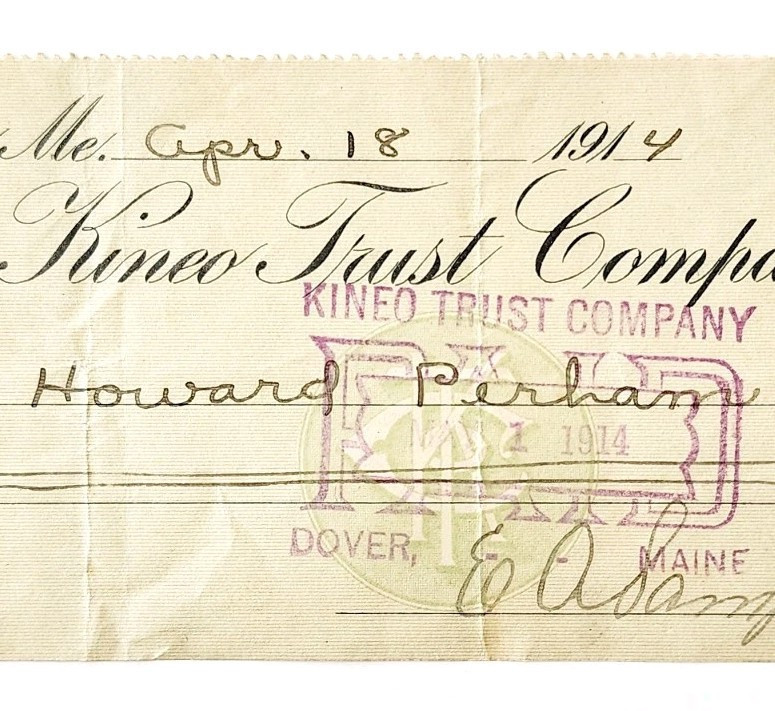 Me. Apr. 18 1914
Kineo Trust Compa
KINEO TRUST COMPANY
Howard Perham
PAID
1 1914
DOVER, - - MAINE
E A